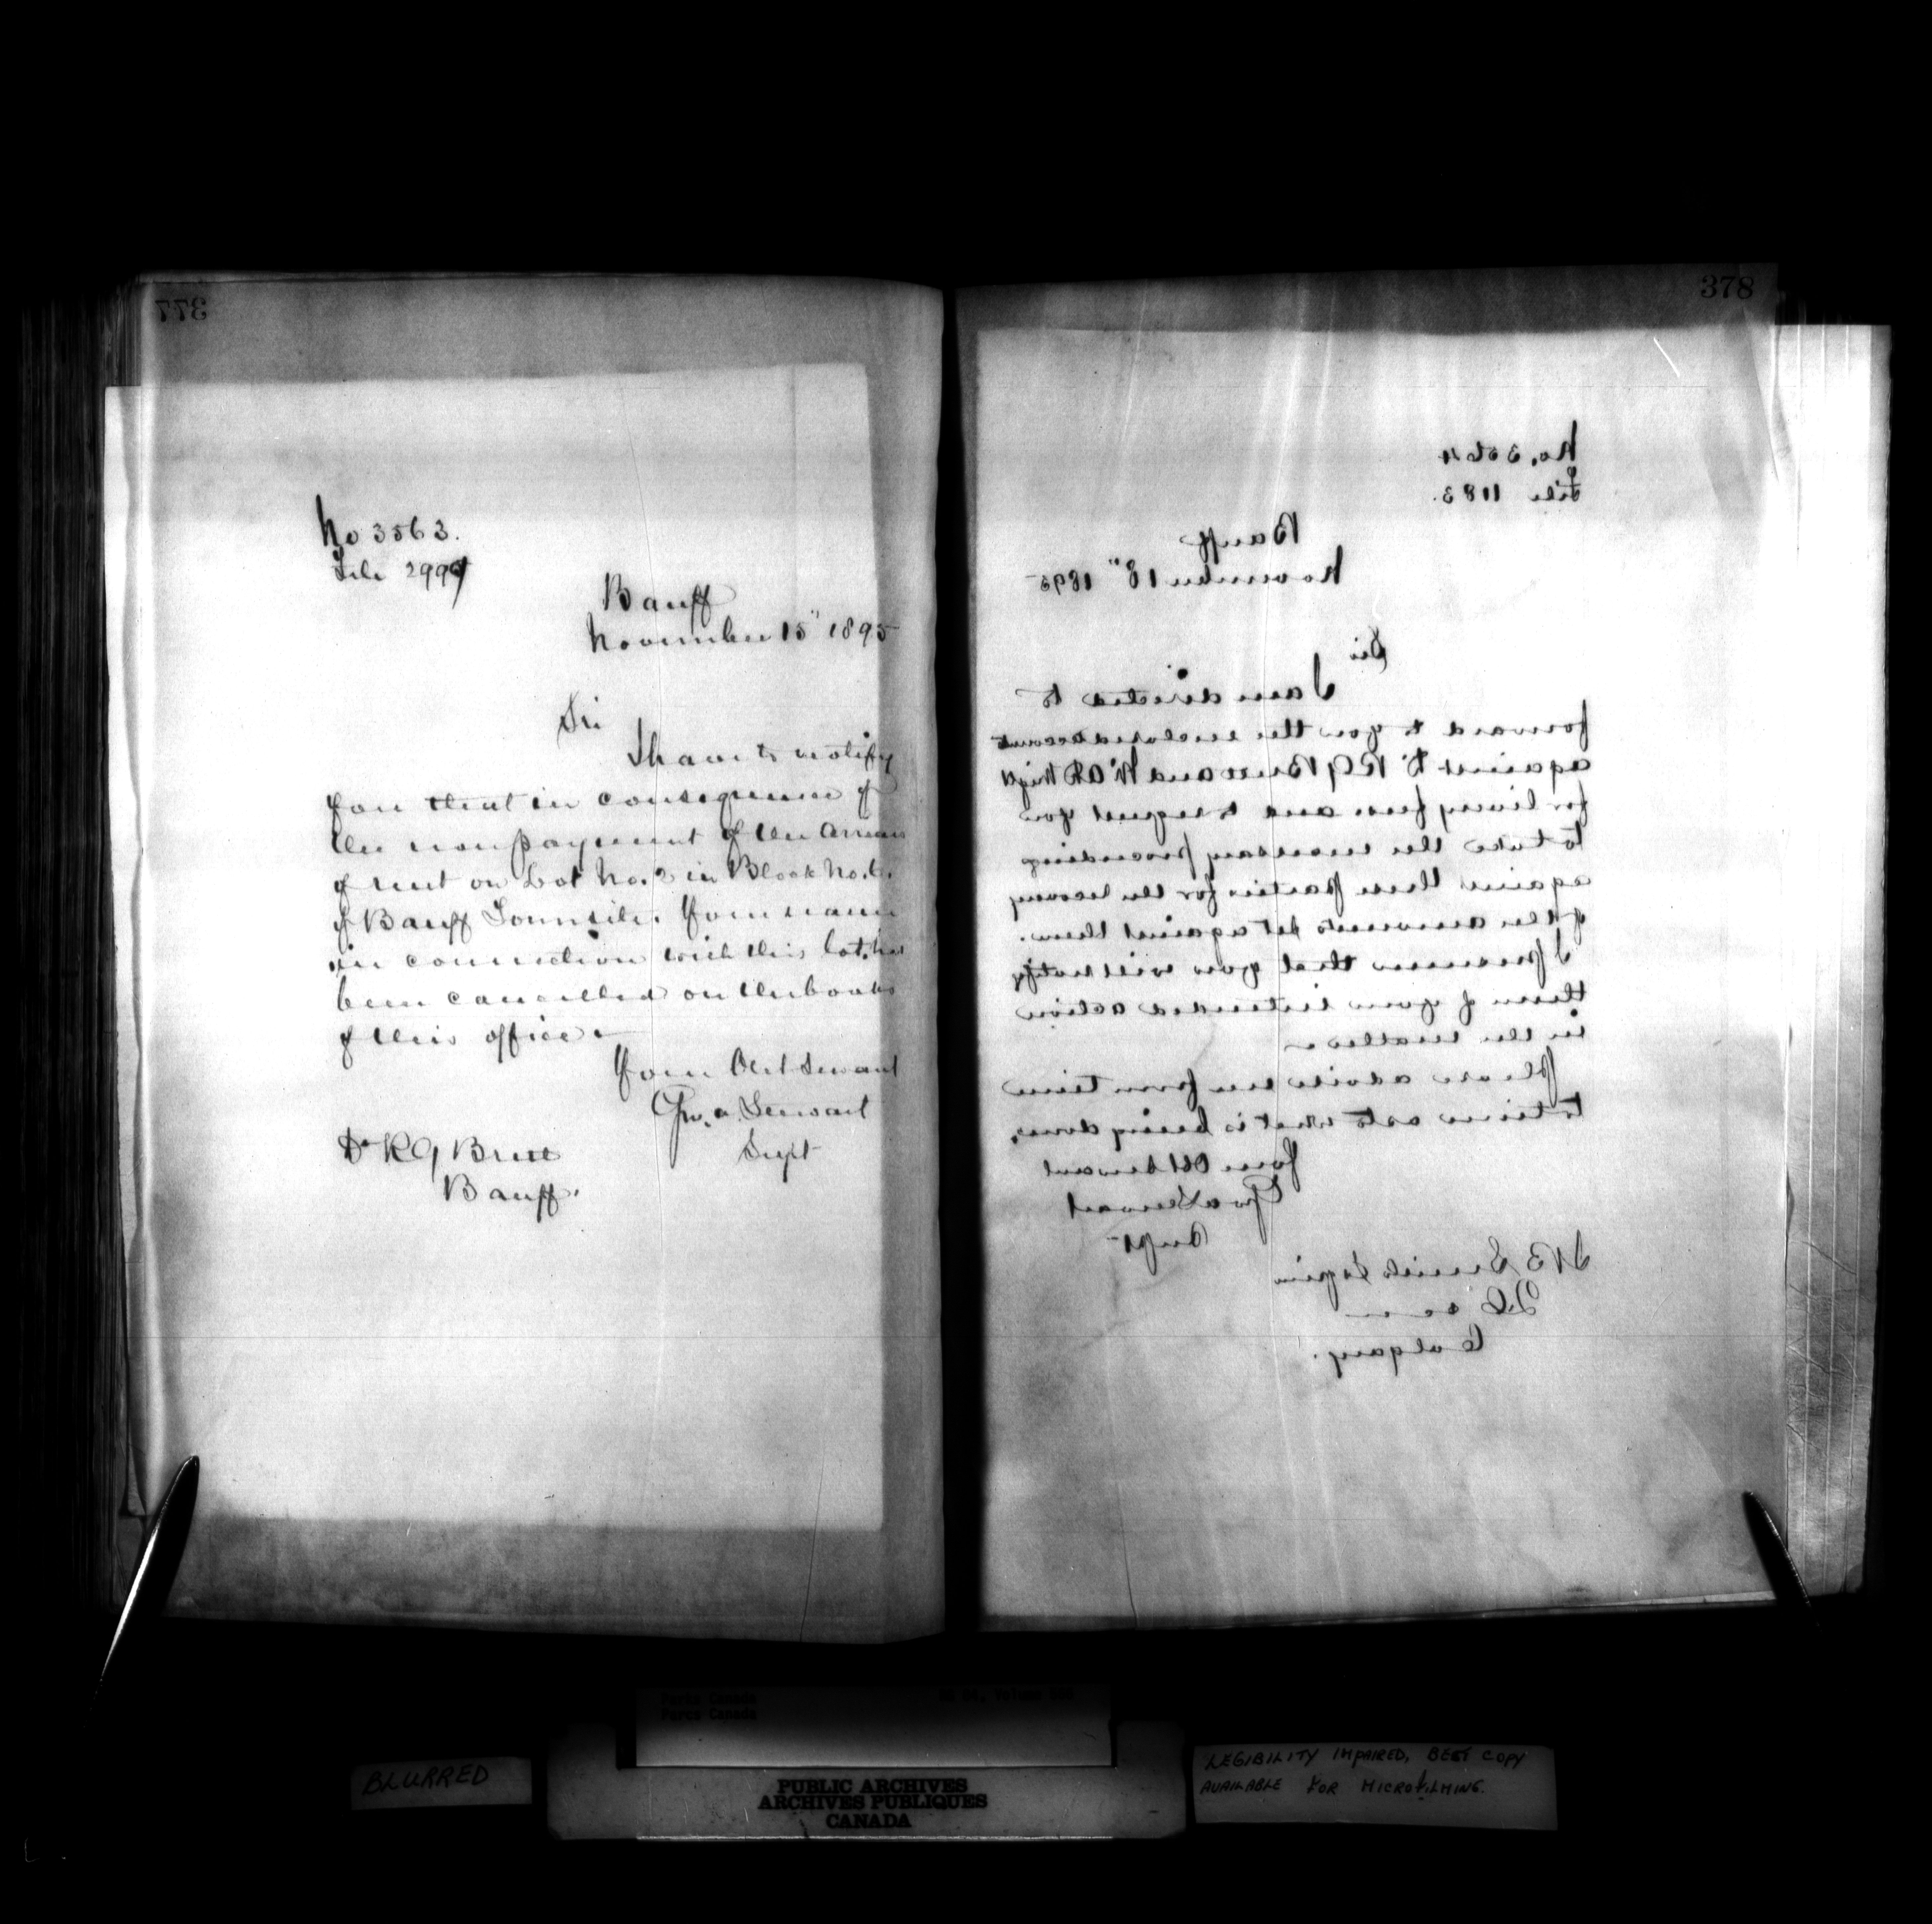 377
No 3563.
File 2999
Banff
November 15" 1895
Sir
I have to notify
you that in consequence of
the non payment of the arrears
of rent on Lot No. 2 in Block No. 6.
of Banff Townsite. Your name
in connection with this lot has
been cancelled on the books
of this office
Your Obt Servant
Geo. A. Stewart
Supt
Dr R G Brett
Banff.
378
No. 3564
File 1183.
Banff
November 18" 1895
Sir
I am directed to
forward to you the enclosed account
against Dr R G Brett and
for livery fees and to request you
to take the necessary proceedings
against these parties for the recovery
of the amounts set against them.
I presume that you will notify
them of your intended action
in the matter
Please advise me from time
to time as to what is being done.
Your Obt Servant
Geo A Stewart
Supt
Calgary.
Parks Canada
Parcs Canada
BLURRED
PUBLIC ARCHIVES
ARCHIVES PUBLIQUES
CANADA
LEGIBILITY IMPAIRED, BEST COPY
AVAILABLE FOR MICROFILMING.